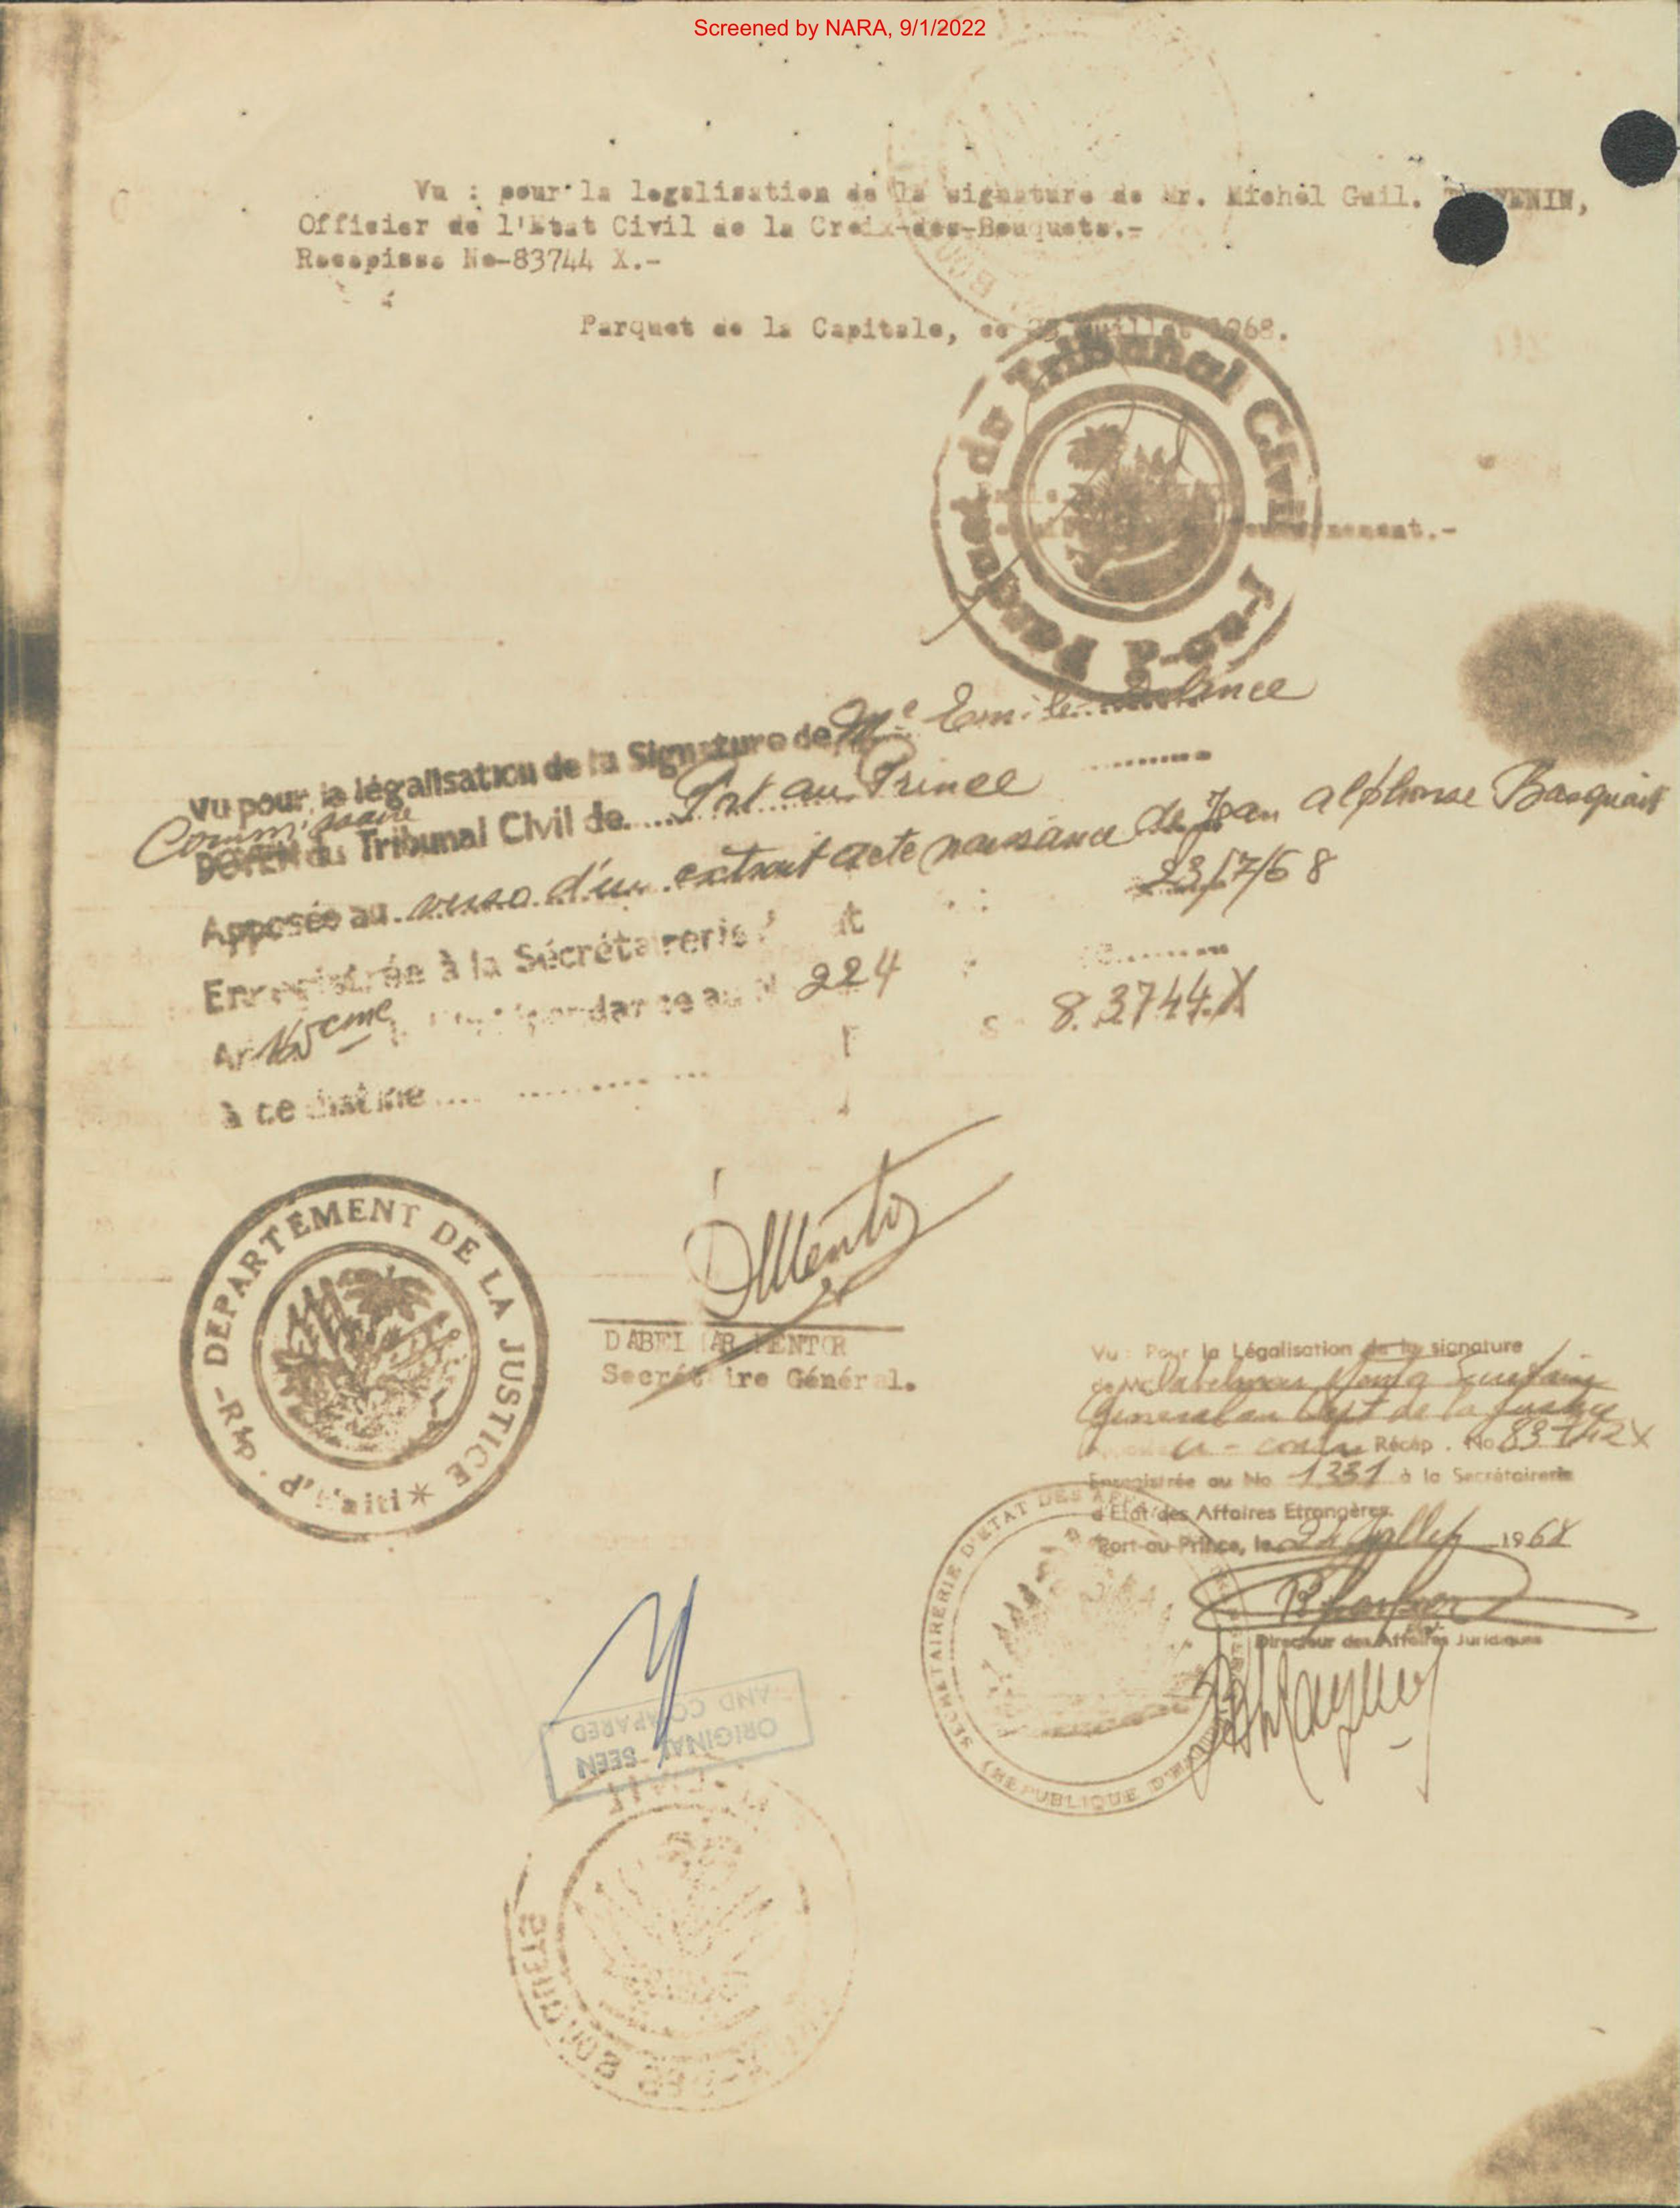 Screened by NARA, 9/1/2022
Vu : pour la legalisation de la signature de Mr. Michel Guil. VENIN,
Officier de l'Etat Civil de la Croix-des-Bouquets.-
Recepisse No-83744 X.-
Parquet de la Capitale, ce 23 Juillet 1968.
Parquet du Tribunal Civil
P-au-P
nement.-
Vu pour la légalisation de la Signature de Me Emile
Commissaire
DOYEN du Tribunal Civil de Port au Prince
Apposée au verso d'un extrait acte naissance de Jean Alphonse Basquiat
Enregistrée à la Sécrétairerie 23/7/68
An 165eme Indépendance au N 224
8.3744.X
à ce destiné
DEPARTEMENT DE LA JUSTICE
Rép. d'Haiti
DABELMAR MENTOR
Secrétaire Général.
Vu : Pour la Légalisation de la signature
de M
General au Dept de la Justice
Récép. No 83742X
Enregistrée au No 1331 à la Secrétairerie
d'Etat des Affaires Etrangères.
Port-au-Prince, le 24 Juillet 1968
Directeur des Affaires Juridiques
SECRETAIRERIE D'ETAT DES
(REPUBLIQUE D'HAITI)
ORIGINAL SEEN
AND COMPARED
DES BOUQUETS